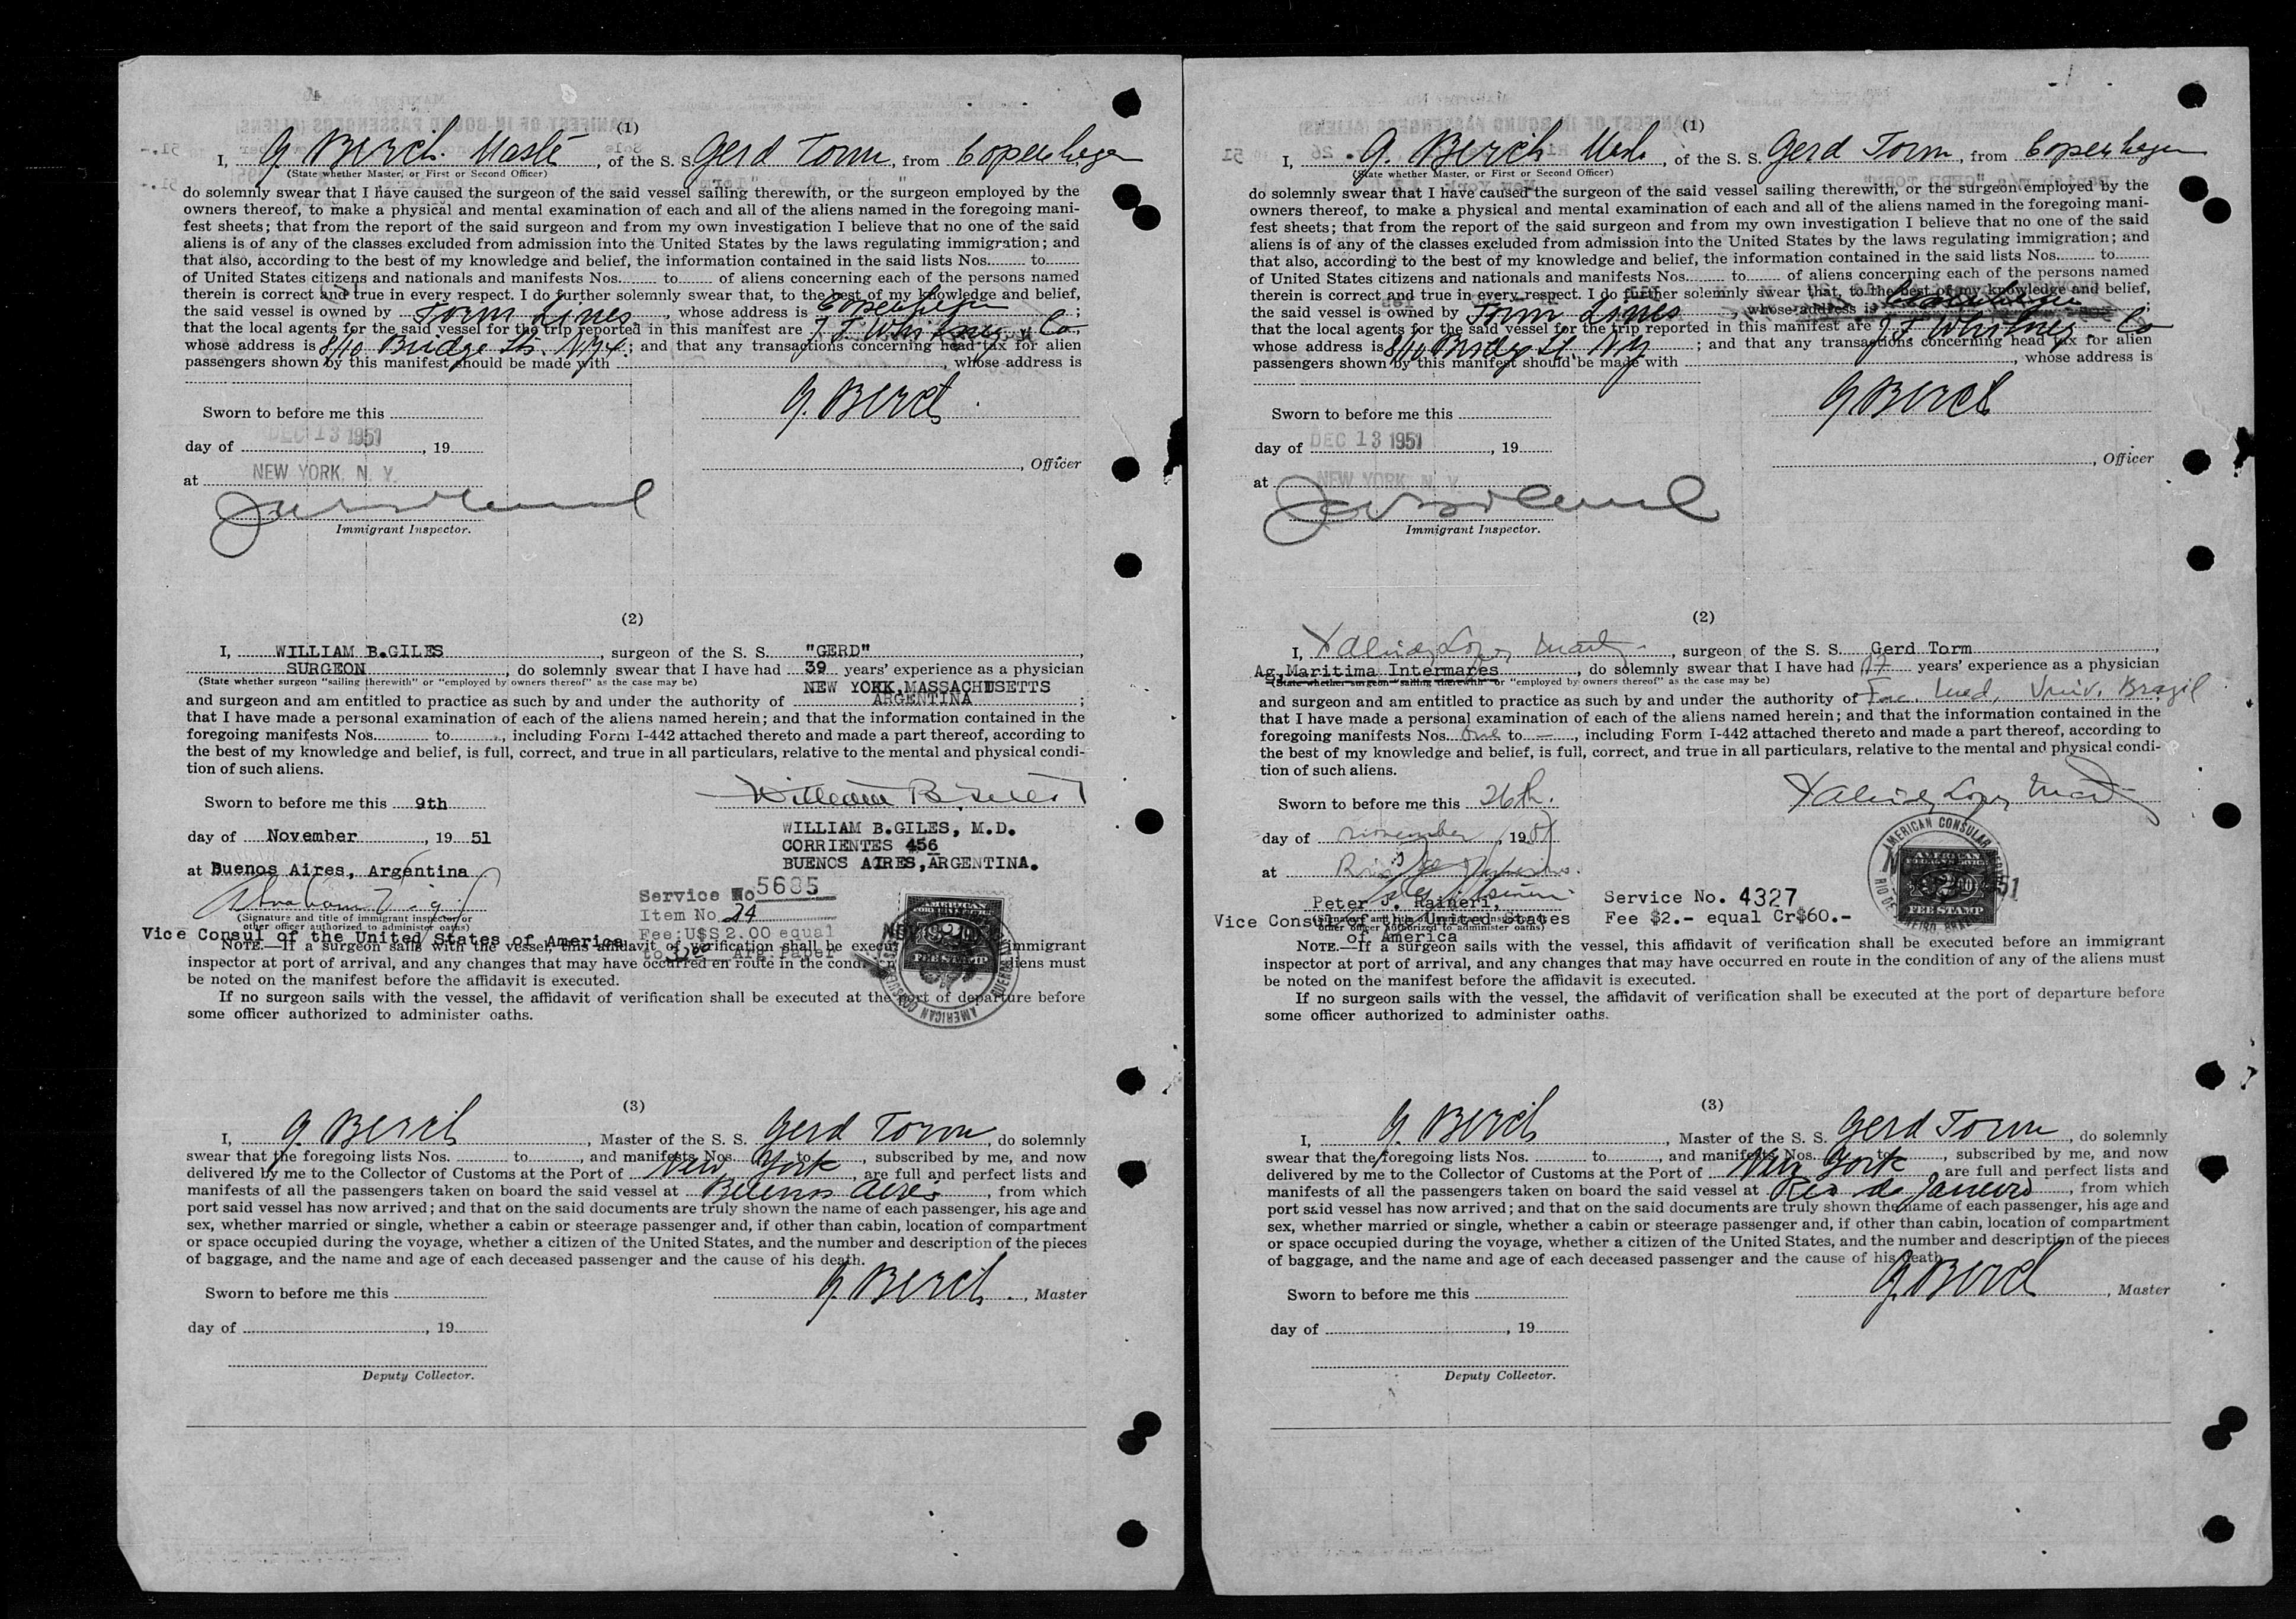 (1)
I, G. Berch. Maste , of the S. S. Gerd Torm, from Copenhagen
(State whether Master, or First or Second Officer)
do solemnly swear that I have caused the surgeon of the said vessel sailing therewith, or the surgeon employed by the
owners thereof, to make a physical and mental examination of each and all of the aliens named in the foregoing mani-
fest sheets; that from the report of the said surgeon and from my own investigation I believe that no one of the said
aliens is of any of the classes excluded from admission into the United States by the laws regulating immigration; and
that also, according to the best of my knowledge and belief, the information contained in the said lists Nos. to
of United States citizens and nationals and manifests Nos. to of aliens concerning each of the persons named
therein is correct and true in every respect. I do further solemnly swear that, to the best of my knowledge and belief,
the said vessel is owned by Torm Lines , whose address is Copenhagen ;
that the local agents for the said vessel for the trip reported in this manifest are J. F. Whitney & Co
whose address is 8/10 Bridge St. N.Y.4.; and that any transactions concerning head tax for alien
passengers shown by this manifest should be made with , whose address is
G. Berch
Sworn to before me this
day of DEC 13 1951 , 19
, Officer
at NEW YORK, N. Y.
Immigrant Inspector.
(2)
I, WILLIAM B.GILES , surgeon of the S. S. "GERD" ,
SURGEON , do solemnly swear that I have had 39 years' experience as a physician
(State whether surgeon "sailing therewith" or "employed by owners thereof" as the case may be)
NEW YORK,MASSACHUSETTS
and surgeon and am entitled to practice as such by and under the authority of ARGENTINA ;
that I have made a personal examination of each of the aliens named herein; and that the information contained in the
foregoing manifests Nos. to , including Form I-442 attached thereto and made a part thereof, according to
the best of my knowledge and belief, is full, correct, and true in all particulars, relative to the mental and physical condi-
tion of such aliens.
William B. Giles
Sworn to before me this 9th
WILLIAM B.GILES, M.D.
day of November , 19 51
CORRIENTES 456
BUENOS AIRES,ARGENTINA.
at Buenos Aires, Argentina
Service No 5685
Item No. 24
(Signature and title of immigrant inspector or
other officer authorized to administer oaths)
Fee: U$S 2.00 equal
Vice Consul of the United States of America
to Arg. Paper
AMERICAN
FEE STAMP
NOTE.—If a surgeon sails with the vessel, this affidavit of verification shall be executed immigrant
inspector at port of arrival, and any changes that may have occurred en route in the condi aliens must
be noted on the manifest before the affidavit is executed.
If no surgeon sails with the vessel, the affidavit of verification shall be executed at the port of departure before
some officer authorized to administer oaths.
(3)
I, G. Berch , Master of the S. S. Gerd Torm , do solemnly
swear that the foregoing lists Nos. to , and manifests Nos. to , subscribed by me, and now
delivered by me to the Collector of Customs at the Port of New York , are full and perfect lists and
manifests of all the passengers taken on board the said vessel at Buenos Aires , from which
port said vessel has now arrived; and that on the said documents are truly shown the name of each passenger, his age and
sex, whether married or single, whether a cabin or steerage passenger and, if other than cabin, location of compartment
or space occupied during the voyage, whether a citizen of the United States, and the number and description of the pieces
of baggage, and the name and age of each deceased passenger and the cause of his death.
Sworn to before me this
G. Berch , Master
day of , 19
Deputy Collector.
(1)
I, G. Berch , of the S. S. Gerd Torm, from Copenhagen
(State whether Master, or First or Second Officer)
do solemnly swear that I have caused the surgeon of the said vessel sailing therewith, or the surgeon employed by the
owners thereof, to make a physical and mental examination of each and all of the aliens named in the foregoing mani-
fest sheets; that from the report of the said surgeon and from my own investigation I believe that no one of the said
aliens is of any of the classes excluded from admission into the United States by the laws regulating immigration; and
that also, according to the best of my knowledge and belief, the information contained in the said lists Nos. to
of United States citizens and nationals and manifests Nos. to of aliens concerning each of the persons named
therein is correct and true in every respect. I do further solemnly swear that, to the best of my knowledge and belief,
the said vessel is owned by Torm Lines , whose address is Copenhagen ;
that the local agents for the said vessel for the trip reported in this manifest are J F Whitney Co
whose address is 8/10 Bridge St. NY ; and that any transactions concerning head tax for alien
passengers shown by this manifest should be made with , whose address is
G Berch
Sworn to before me this
day of DEC 13 1951 , 19
, Officer
at NEW YORK, N. Y.
Immigrant Inspector.
(2)
I, , surgeon of the S. S. Gerd Torm ,
Ag.Maritima Intermares , do solemnly swear that I have had 17 years' experience as a physician
(State whether surgeon "sailing therewith" or "employed by owners thereof" as the case may be)
and surgeon and am entitled to practice as such by and under the authority of Fac. Med. Univ. Brazil
that I have made a personal examination of each of the aliens named herein; and that the information contained in the
foregoing manifests Nos. One to — , including Form I-442 attached thereto and made a part thereof, according to
the best of my knowledge and belief, is full, correct, and true in all particulars, relative to the mental and physical condi-
tion of such aliens.
Sworn to before me this 26th.
day of november , 1951
at Rio de Janeiro.
AMERICAN CONSULAR
AMERICAN
FEE STAMP
Peter J. Raineri,
Service No. 4327
Vice Consul of the United States
Fee $2.- equal Cr$60.-
(Signature and title of immigrant inspector or
other officer authorized to administer oaths)
of America
NOTE.—If a surgeon sails with the vessel, this affidavit of verification shall be executed before an immigrant
inspector at port of arrival, and any changes that may have occurred en route in the condition of any of the aliens must
be noted on the manifest before the affidavit is executed.
If no surgeon sails with the vessel, the affidavit of verification shall be executed at the port of departure before
some officer authorized to administer oaths.
(3)
I, G. Berch , Master of the S. S. Gerd Torm , do solemnly
swear that the foregoing lists Nos. to , and manifests Nos. to , subscribed by me, and now
delivered by me to the Collector of Customs at the Port of New York , are full and perfect lists and
manifests of all the passengers taken on board the said vessel at Rio de Janeiro , from which
port said vessel has now arrived; and that on the said documents are truly shown the name of each passenger, his age and
sex, whether married or single, whether a cabin or steerage passenger and, if other than cabin, location of compartment
or space occupied during the voyage, whether a citizen of the United States, and the number and description of the pieces
of baggage, and the name and age of each deceased passenger and the cause of his death.
Sworn to before me this
G. Berch , Master
day of , 19
Deputy Collector.